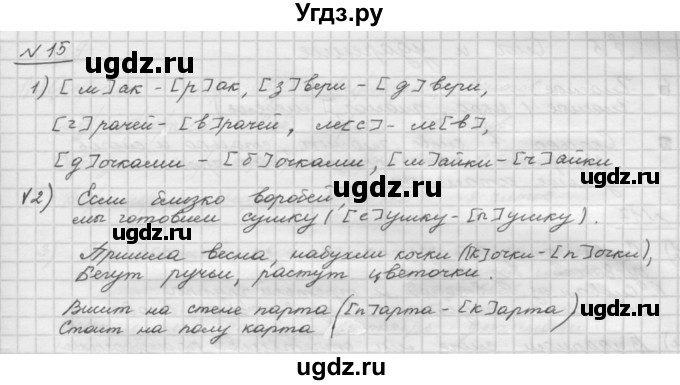 Угдз.ру
N 15
1) [м]ак - [р]ак, [з]вери - [д]вери,
[г]рачей - [в]рачей, ле[с] - ле[в],
[д]очками - [б]очками, [м]айки - [ч]айки
√2) Если близко воробей,
мы готовим сушку ([с]ушку - [п]ушку).
Пришла весна, набухли кочки ([к]очки - [п]очки),
Бегут ручьи, растут цветочки.
Висит на стене парта ([п]арта - [к]арта)
Стоит на полу карта
ugdz.ru ugdz.ru
ugdz.ru ugdz.ru
ugdz.ru ugdz.ru
ugdz.ru ugdz.ru
ugdz.ru ugdz.ru
ugdz.ru ugdz.ru